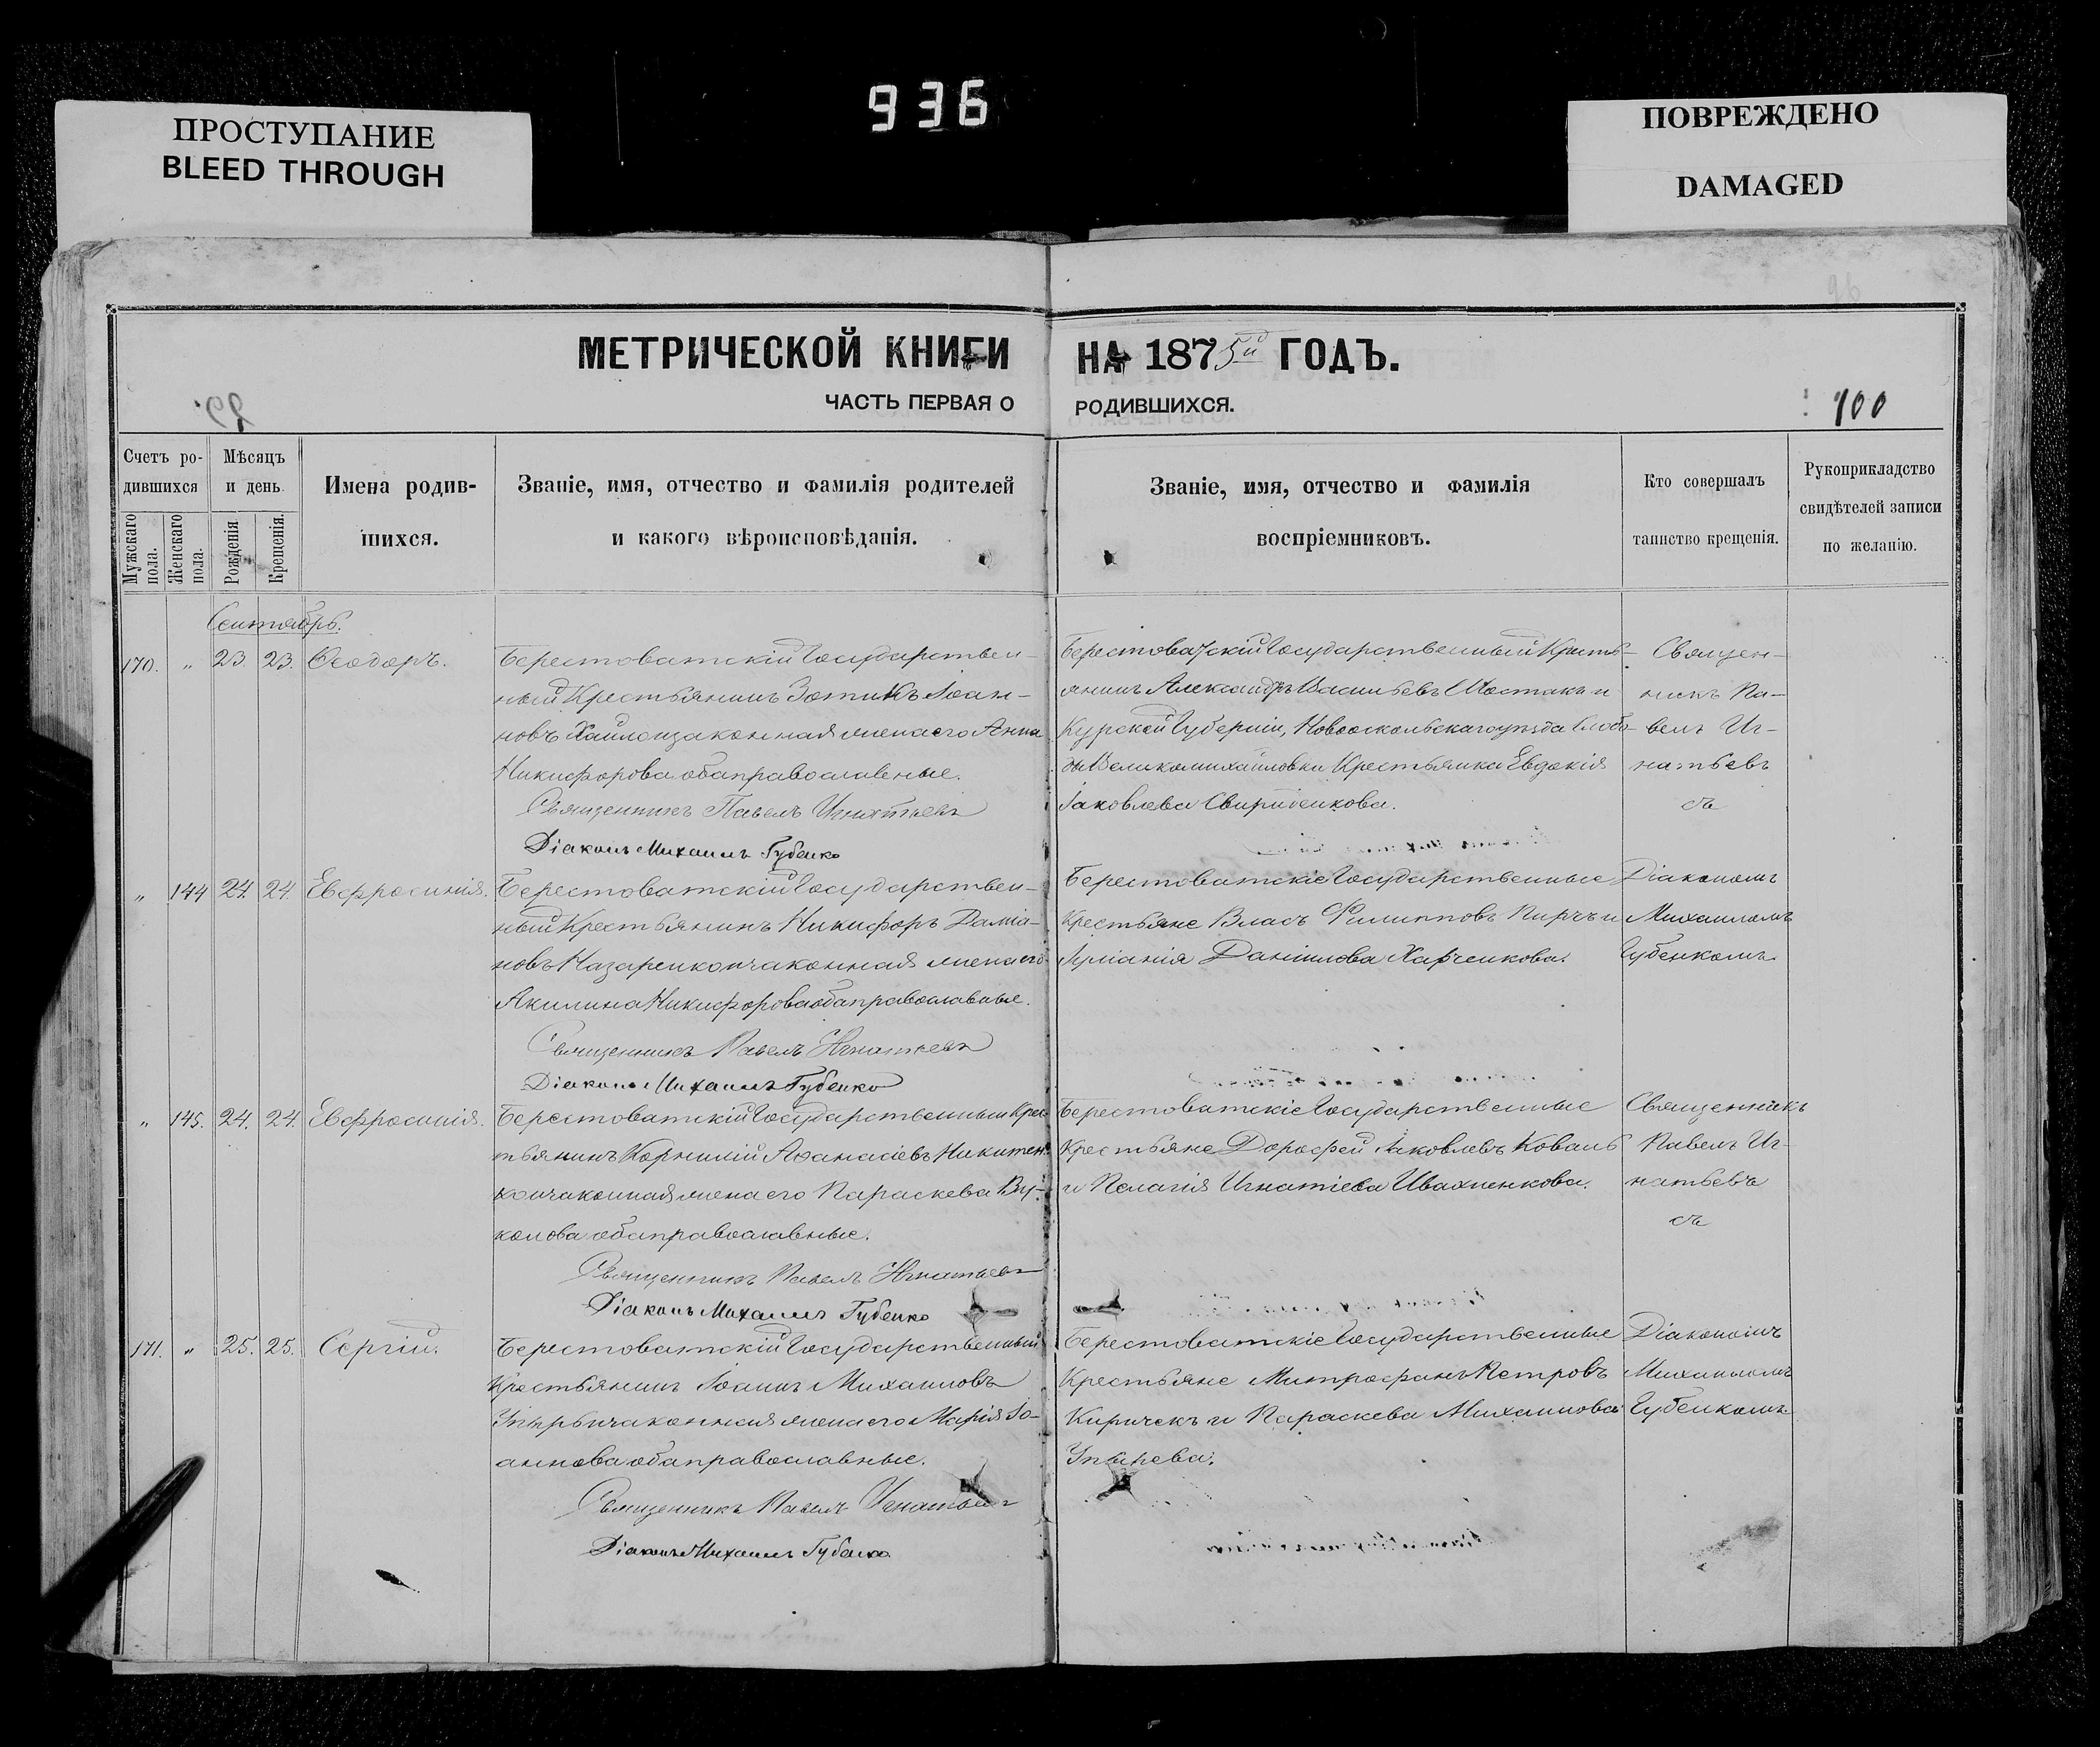 936
ПРОСТУПАНИЕ
BLEED THROUGH
ПОВРЕЖДЕНО
DAMAGED
МЕТРИЧЕСКОЙ КНИГИ НА 1875й ГОДЪ.
ЧАСТЬ ПЕРВАЯ О РОДИВШИХСЯ.
100
Счетъ ро-
дившихся
Мужскаго пола.
Женскаго пола.
Мѣсяцъ
и день
Рожденія
Крещенія.
Имена родив-
шихся.
Званіе, имя, отчество и фамилія родителей
и какого вѣроисповѣданія.
Званіе, имя, отчество и фамилія
воспріемниковъ.
Кто совершалъ
таинство крещенія.
Рукоприкладство
свидѣтелей записи
по желанію.
Сентябрь.
170. „ 23. 23. Ѳеодоръ.
Берестоватскій Государствен-
ный Крестьянинъ Зотикъ Іоан-
новъ Хайло и законная жена его Анна
Никифорова оба православные.
Священникъ Павелъ Игнатьевъ
Діаконъ Михаилъ Губенко
Берестоватскій Государственный Кресть-
янинъ Александръ Васильевъ Шостакъ и
Курской Губерніи, Новооскольскаго уѣзда Слобо-
ды Великомихайловки Крестьянка Евдокія
Іаковлева Свириденкова.
Священ-
никъ Па-
велъ Иг-
натьевъ
съ
„ 144 24. 24. Евфросинія.
Берестоватскій Государствен-
ный Крестьянинъ Никифоръ Даміа-
новъ Назаренко и законная жена его
Акилина Никифорова оба православные.
Священникъ Павелъ Игнатьевъ
Діаконъ Михаилъ Губенко
Берестоватскіе Государственные
Крестьяне Власъ Филипповъ Пирчъ и
Іуліанія Даніилова Харченкова.
Діакономъ
Михаиломъ
Губенкомъ.
„ 145. 24. 24. Евфросинія.
Берестоватскій Государственный Крес-
тьянинъ Корнилій Аѳанасіевъ Никитен-
ко и законная жена его Параскева Ву-
колова оба православные.
Священникъ Павелъ Игнатьевъ
Діаконъ Михаилъ Губенко
Берестоватскіе Государственные
Крестьяне Дорофей Іаковлевъ Коваль
и Пелагія Игнатіева Ивахненкова.
Священникъ
Павелъ Иг-
натьевъ
съ
171. „ 25. 25. Сергій.
Берестоватскій Государственный
Крестьянинъ Іоаннъ Михаиловъ
и законная жена его Марія Іо-
аннова оба православные.
Священникъ Павелъ Игнатьевъ
Діаконъ Михаилъ Губенко
Берестоватскіе Государственные
Крестьяне Митрофанъ Петровъ
Киричекъ и Параскева Михаилова
Діакономъ
Михаиломъ
Губенкомъ